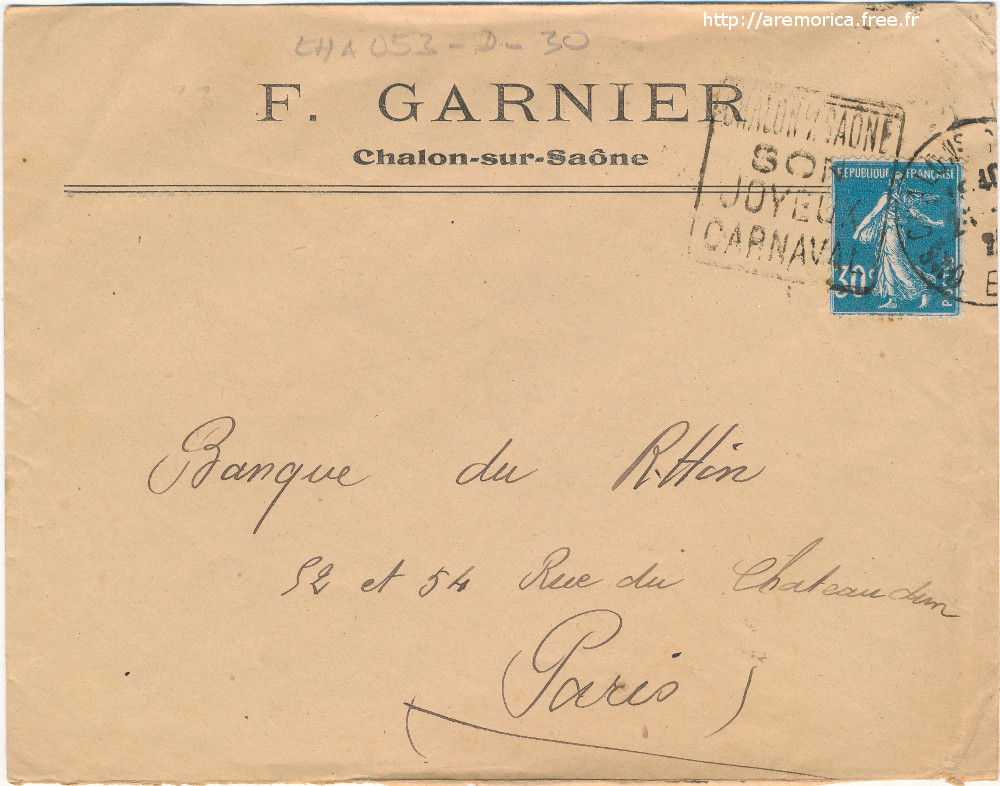 http://aremorica.free.fr
CHA053-D-30
F. GARNIER
Chalon-sur-Saône
CHALON S/ SAONE
SON
JOYEUX
CARNAVAL
REPUBLIQUE FRANÇAISE
30c
Banque du Rhin
52 et 54 Rue du Chateaudun
Paris